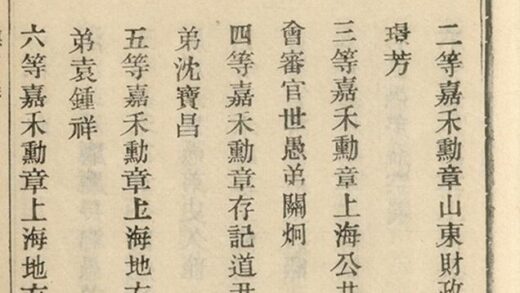 二等嘉禾勳章山東財政
璟芳
三等嘉禾勳章上海公共
會審官世愚弟關炯
四等嘉禾勳章存記道尹
弟沈寶昌
五等嘉禾勳章上海地方
弟袁鍾祥
六等嘉禾勳章上海地方